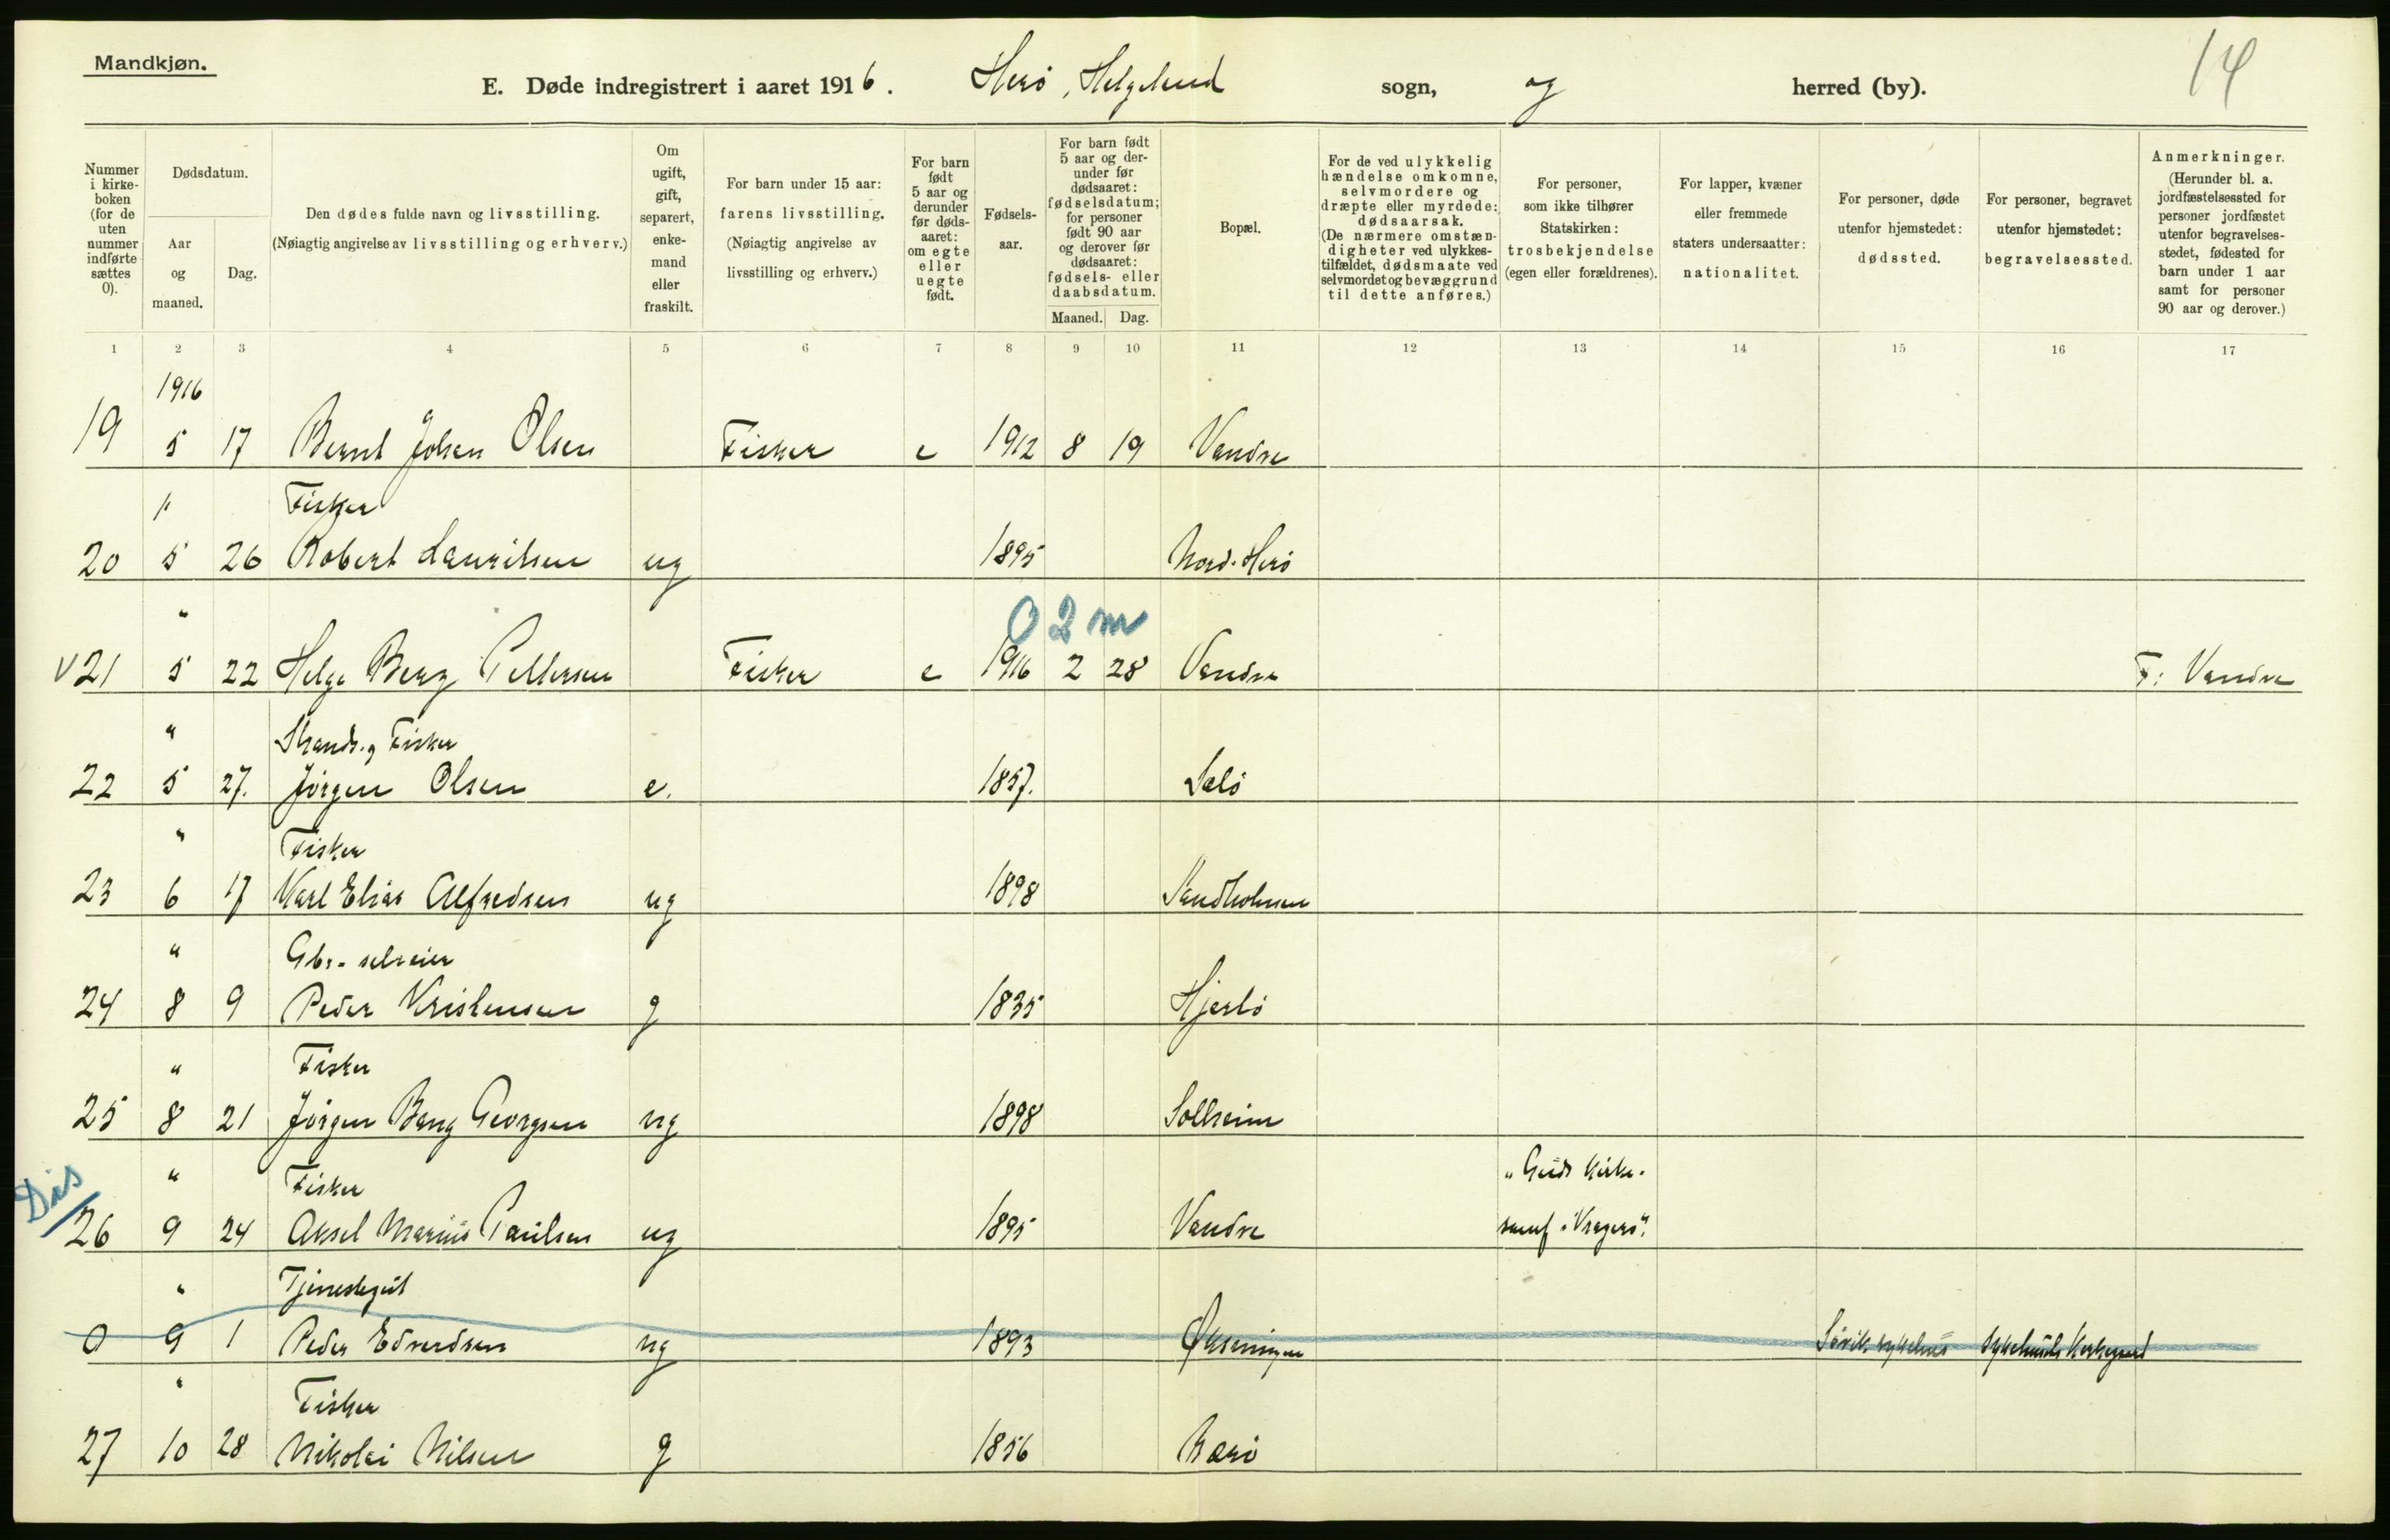 Mandkjøn.
14
E. Døde indregistrert i aaret 1916. Herö, Helgeland sogn, og herred (by).
Nummer i kirke-boken (for de uten nummer indførte sættes 0).
Dødsdatum.
Aar og maaned.
Dag.
Den dødes fulde navn og livsstilling.
(Nøiagtig angivelse av livsstilling og erhverv.)
Om ugift, gift, separert, enke-mand eller fraskilt.
For barn under 15 aar: farens livsstilling. (Nøiagtig angivelse av livsstilling og erhverv.)
For barn født 5 aar og derunder før døds-aaret: om egte eller uegte født.
Fødsels-aar.
For barn født 5 aar og der-under før dødsaaret: fødselsdatum; for personer født 90 aar og derover før dødsaaret: fødsels- eller daabsdatum.
Maaned. Dag.
Bopæl.
For de ved ulykkelig hændelse omkomne, selvmordere og dræpte eller myrdede: dødsaarsak. (De nærmere omstæn-digheter ved ulykkes-tilfældet, dødsmaate ved selvmordet og bevæggrund til dette anføres.)
For personer, som ikke tilhører Statskirken: trosbekjendelse (egen eller forældrenes).
For lapper, kvæner eller fremmede staters undersaatter: nationalitet.
For personer, døde utenfor hjemstedet: dødssted.
For personer, begravet utenfor hjemstedet: begravelsessted.
Anmerkninger. (Herunder bl. a. jordfæstelsessted for personer jordfæstet utenfor begravelses-stedet, fødested for barn under 1 aar samt for personer 90 aar og derover.)
1 2 3 4 5 6 7 8 9 10 11 12 13 14 15 16 17
1916
19 5 17 Bernt Johan Olsen Fisker e 1912 8 19 Vandve
" Fisker
20 5 26 Robert Lauritsen ug 1895 Nord-Herö
" 0 2 m
V 21 5 22 Helge Berg Pettersen Fisker e 1916 2 28 Vandve F: Vandve
" Strands. og Fisker
22 5 27. Jörgen Olsen e. 1857. Selö
" Fisker
23 6 17 Karl Elias Alfredsen ug 1898 Sandholmen
" Gbr.- selveier
24 8 9 Peder Kristensen g 1835 Hjertö
" Fisker
25 8 21 Jörgen Bang Georgsen ug 1898 Solheim
Dis " Fisker "Guds Kirke.
26 9 24 Aksel Marius Paulsen ug 1895 Vandve samf. i Kragerö".
" Tjenestegut
0 9 1 Peder Edvardsen ug 1893 Øksningen Sövik sykehus Sykehusets Kirkegaard
" Fisker
27 10 28 Nikolai Nilsen g 1856 Bærö